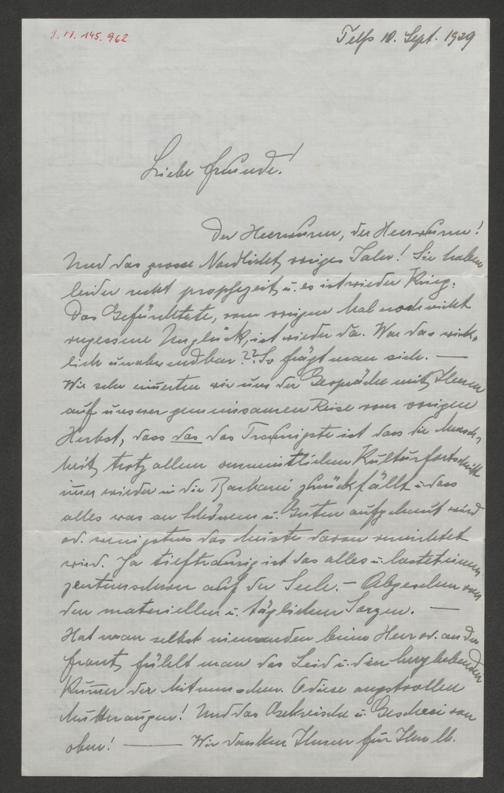 I.N. 145.962
Telfs 10. Sept. 1939
Liebe Freunde!
Der Heerwurm, der Heerwurm!
Und das grosse Nordlicht voriges Jahr! Sie haben
leider recht prophezeit u. es ist wieder Krieg.
Das Gefürchtete, vom vorigen Mal noch nicht
vergessene Unglück, ist wieder da. War das wirk-
lich unabwendbar?? So frägt man sich. —
Wie sehr erinnerten wir uns der Gespräche mit Ihnen
auf unserer gemeinsamen Reise vom vorigen
Herbst, dass das das Traurigste ist dass die Mensch-
heit trotz allem Kulturfortschritt
immer wieder in die Barbarei zurückfällt u. dass
alles was an Schönem u. Gutem aufgebaut wird
od. wenigstens das Meiste davon vernichtet
wird. Ja tieftraurig ist das alles u. lastet einem
zentnerschwer auf der Seele. – Abgesehen von
den materiellen u. täglichen Sorgen. —
Hat man selbst niemanden beim Heer od. an der
Front, fühlt man das Leid u. den
Kummer der Mitmenschen. O diese angstvollen
Mutteraugen! Und das Gekreische u. Geschrei von
oben! — Wir danken Ihnen für Ihre lb.